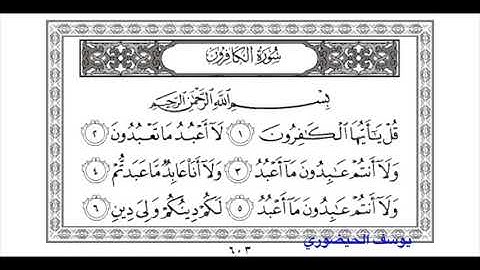 سُورَةُ الكَافِرُونَ
بِسْمِ اللَّهِ الرَّحْمَٰنِ الرَّحِيمِ
قُلْ يَٰٓأَيُّهَا ٱلْكَٰفِرُونَ ١ لَآ أَعْبُدُ مَا تَعْبُدُونَ ٢
وَلَآ أَنتُمْ عَٰبِدُونَ مَآ أَعْبُدُ ٣ وَلَآ أَنَا۠ عَابِدٌ مَّا عَبَدتُّمْ ٤
وَلَآ أَنتُمْ عَٰبِدُونَ مَآ أَعْبُدُ ٥ لَكُمْ دِينُكُمْ وَلِىَ دِينِ ٦
يوسف الحيضوري
٦٠٣